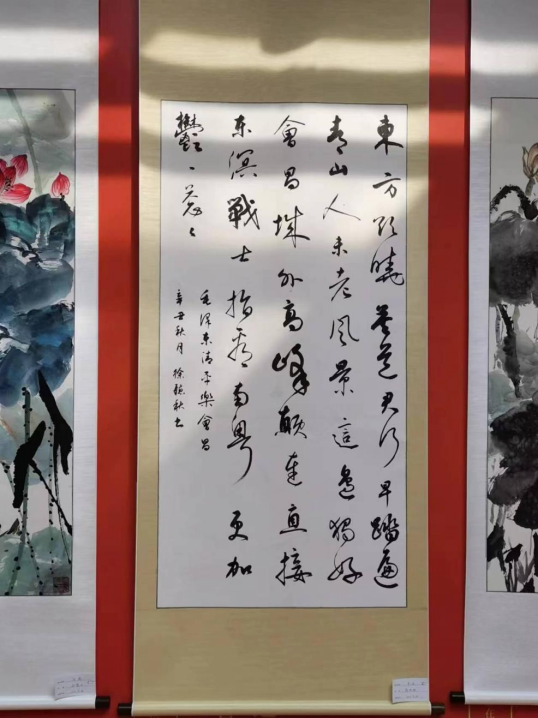 東方欲曉莫道君行早踏遍
青山人未老風景這邊獨好
會昌城外高峰顛連直接
东溟戰士指看南粵更加
鬱鬱葱葱
毛泽东清平樂會昌
辛丑秋月徐